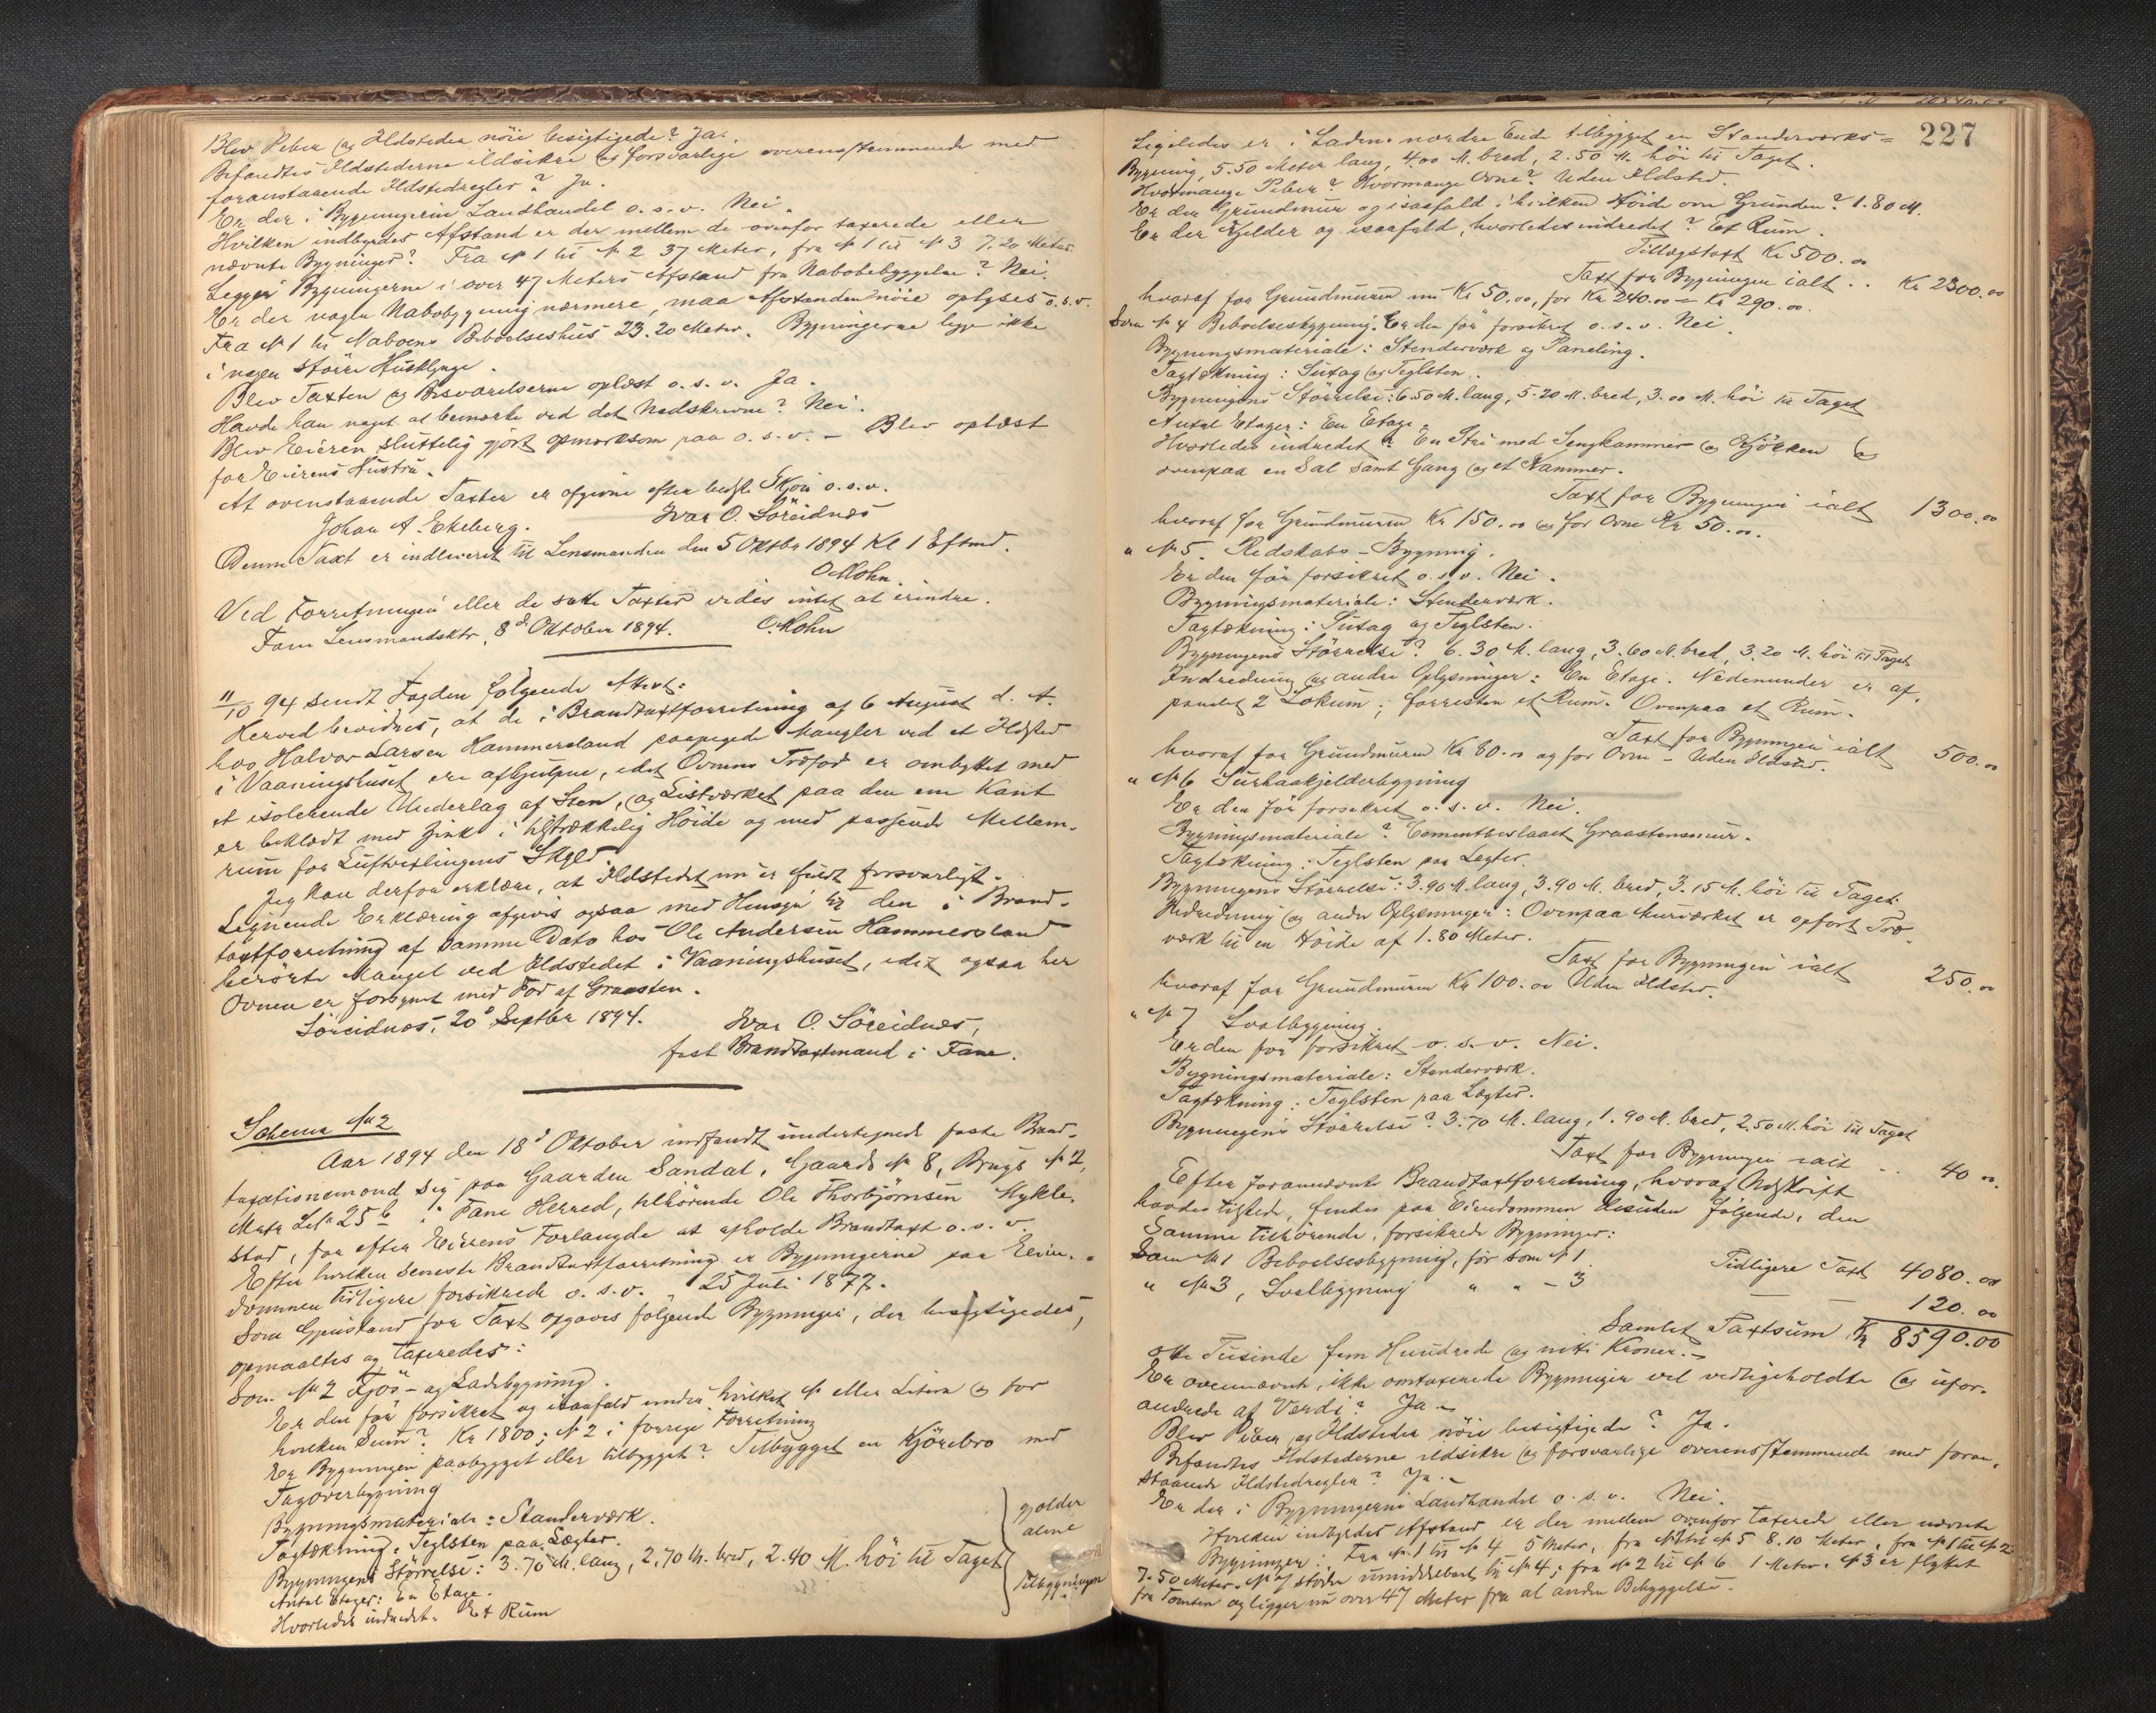 Blev Piber og Ildsteder nöie besigtigede? Ja.
Befandtes Ildstederne ildsikre og forsvarlige overensstemmende med
foranstaaende Ildstedregler? Ja.
Er der i Bygningerne Landhandel o. s. v. Nei.
Hvilken indbyrdes Afstand er der mellem de ovenfor taxerede eller
nævnte Bygninger? Fra № 1 til № 2 37 Meter, fra № 1 til № 3 7.20 Meter.
Ligger Bygningerne i over 47 Meters Afstand fra Nabobebyggelse? Nei.
Er der nogen Nabobygning nærmere, maa Afstanden nöie oplyses o. s. v.
Fra № 1 til Naboens Beboelseshus 23.20 Meter. Bygningerne ligge ikke
i nogen större Husklynge.
Blev Taxten og Besvarelserne oplæst o. s. v. Ja.
Havde han noget at bemærke ved det Nedskrevne? Nei.
Blev Eieren sluttelig gjort opmærksom paa o. s. v. – Blev oplæst
for Eierens Hustru.
At ovenstaaende Taxter er afgivne efter bedste Skjön o. s. v.
Johan A. Ekeberg. Ivar O. Söreidnæs
Denne Taxt er indleveret til Lensmanden den 5 Oktbr 1894 Kl 1 Eftmd.
O Mohn.
Ved Forretningen eller de satte Taxter vides intet at erindre.
Fane Lensmandsktr, 8d Oktober 1894. O. Mohn
11/10 94 sendt Fogden følgende Attest:
Herved bevidnes, at de i Brandtaxtforretning af 6 August d. A.
hos Halvor Larsen Hammersland paapegede Mangler ved et Ildsted
i Vaaningshuset ere afhjulpne, idet Ovnens Træfod er ombyttet med
et isolerende Underlag af Sten, og Listværket paa den ene Kant
er beklædt med Zink i tilstrækkelig Höide og med passende Mellem-
rum for Luftvexlingens Skyld.
Jeg kan derfor erklære, at Ildstedet nu er fuldt forsvarligt.
Lignende Erklæring afgives ogsaa med Hensyn til den i Brand-
taxtforretning af samme Dato hos Ole Andersen Hammersland
berörte Mangel ved Ildstedet i Vaaningshuset, idet ogsaa her
Ovnen er forsynet med Fod af Graasten.
Söreidnæs, 20d Septbr 1894. Ivar O. Söreidnæs,
fast Brandtaxtmand i Fane.
Schema № 2
Aar 1894 den 18d Oktober indfandt undertegnede faste Brand-
taxationsmænd sig paa Gaarden Sandal, Gaards № 8, Brugs № 2,
Matr Lit 25 b i Fane Herred, tilhörende Ole Thorbjørnsen Mykle-
stad, for efter Eierens Forlangde at afholde Brandtaxt o. s. v.
Efter hvilken seneste Brandtaxtforretning er Bygningerne paa Eien-
dommen tidligere forsikrede o. s. v. 25 Juli 1877.
Som Gjenstand for Taxt opgaves følgende Bygninger, der besigtigedes,
opmaaltes og taxeredes:
Som № 2 Fjös- og Ladebygning.
Er den för forsikret og isaafald under hvilket № eller Litera og for
hvilken Sum? Kr 1800; № 2 i forrige Forretning
Er Bygningen paabygget eller tilbygget? Tilbygget en Kjörebro med
Tagoverbygning
Bygningsmateriale: Stænderværk.
Tagtækning: Teglsten paa Lægter.
Bygningens Störrelse: 3.70 M. lang, 2.70 M. bred, 2.40 M. höi til Taget
Antal Etager: En Etage.
Hvorledes indredet. Et Rum
gjælder
alene
Tilbygningen
227
Ligeledes er i Ladens nordre Ende tilbygget en Stænderværks-
Bygning, 5.50 Meter lang, 4.00 M. bred, 2.50 M. höi til Taget.
Hvormange Piber? Hvormange Ovne? Uden Ildsted.
Er der Grundmur og isaafald i hvilken Höide om Grunden? 1.80 M.
Er der Kjelder og isaafald, hvorledes indredet? Et Rum.
Tillægstaxt Kr 500.00
Taxt for Bygningen ialt .. Kr 2300.00
hvoraf for Grundmuren nu Kr 50.00, för Kr 240.00 = Kr 290.00.
Som № 4 Beboelsesbygning. Er den för forsikret o. s. v. Nei.
Bygningsmateriale: Stenderværk og Paneling.
Tagtækning: Sutag og Teglsten.
Bygningens Störrelse: 6.50 M. lang, 5.20 M. bred, 3.00 M. höi til Taget
Antal Etager: En Etage.
Hvorledes indredet? En Stue med Sengkammer og Kjökken og
ovenpaa en Sal samt Gang og et Kammer.
Taxt for Bygningen ialt 1300.00
hvoraf for Grundmuren Kr 150.00 og for Ovne Kr 50.00.
" № 5. Redskabs-Bygning.
Er den för forsikret o. s. v. Nei.
Bygningsmateriale: Stenderværk.
Tagtækning: Sutag og Teglsten.
Bygningens Störrelse? 6.30 M. lang, 3.60 M. bred, 3.20 M. höi til Taget
Indredning og andre Oplysninger: En Etage. Nedenunder er af-
pandet 2 Lokum; forresten et Rum. Ovenpaa et Rum.
Taxt for Bygningen ialt 500.00
hvoraf for Grundmuren Kr 80.00 og for Ovne – Uden Ildsted.
" № 6 Surhaakjelderbygning
Er den för forsikret o. s. v. Nei.
Bygningsmateriale? Cementbeslaaet Graastensmur.
Tagtækning: Teglsten paa Lægter.
Bygningens Störrelse: 3.90 M. lang, 3.90 M. bred, 3.15 M. höi til Taget.
Indredning og andre Oplysninger: Ovenpaa Murværket er opfört Træ-
værk til en Höide af 1.80 Meter.
Taxt for Bygningen ialt 250.00
hvoraf for Grundmuren Kr 100.00 Uden Ildsted.
" № 7 Svalbygning.
Er den för forsikret o. s. v. Nei.
Bygningsmateriale: Stenderværk.
Tagtækning: Teglsten paa Lægter.
Bygningens Störrelse? 3.70 M. lang, 1.90 M. bred, 2.50 M. höi til Taget
Taxt for Bygningen ialt .. 40 00.
Efter forannævnte Brandtaxtforretning, hvoraf Udskrift
havdes tilstede, findes paa Eiendommen desuden følgende, den
samme tilhörende, forsikrede Bygninger:
Som № 1 Beboelsesbygning, för som № 1. Tidligere Taxt 4080.00
" № 3, Svalbygning " " – 3 — — 120.00
Samlet Taxtsum Kr 8590.00
otte Tusinde fem Hundrede og nitti Kroner.
Er ovennævnte, ikke omtaxerede Bygninger vel vedligeholdte og ufor-
andrede af Værdi? Ja.
Blev Piber og Ildsteder nöie besigtigede? Ja.
Befandtes Ildstederne ildsikre og forsvarlige overensstemmende med foran-
staaende Ildstedregler? Ja.
Er der i Bygningerne Landhandel o. s. v. Nei.
Hvilken indbyrdes Afstand er der mellem ovenfor taxerede eller nævnte
Bygninger: Fra № 1 til № 4 5 Meter, fra № 1 til № 5 8.10 Meter, fra № 1 til № 2
7.50 Meter. № 7 stöder umiddelbart til № 4; fra № 2 til № 6 1 Meter. № 3 er flyttet
fra Tomten og ligger nu over 47 Meter fra al anden Bebyggelse.